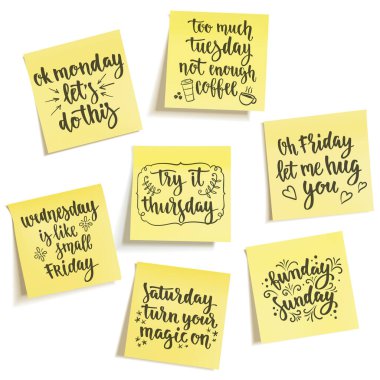 ok monday
let's
do this
too much
tuesday
not enough
coffee
wednesday
is like
small
Friday
try it
thursday
oh Friday
let me hug
you
Saturday
turn your
magic on
funday
Sunday